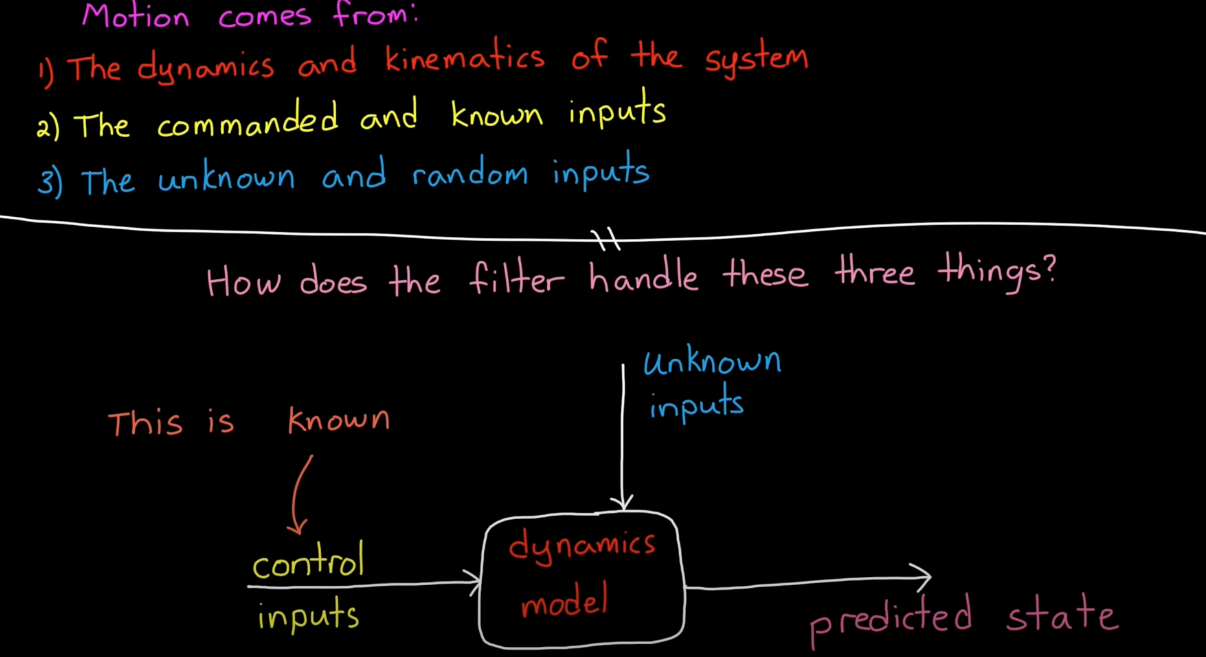 Motion comes from:
1) The dynamics and kinematics of the system
2) The commanded and known inputs
3) The unknown and random inputs
How does the filter handle these three things?
unknown
inputs
This is known
control
inputs
dynamics
model
predicted state